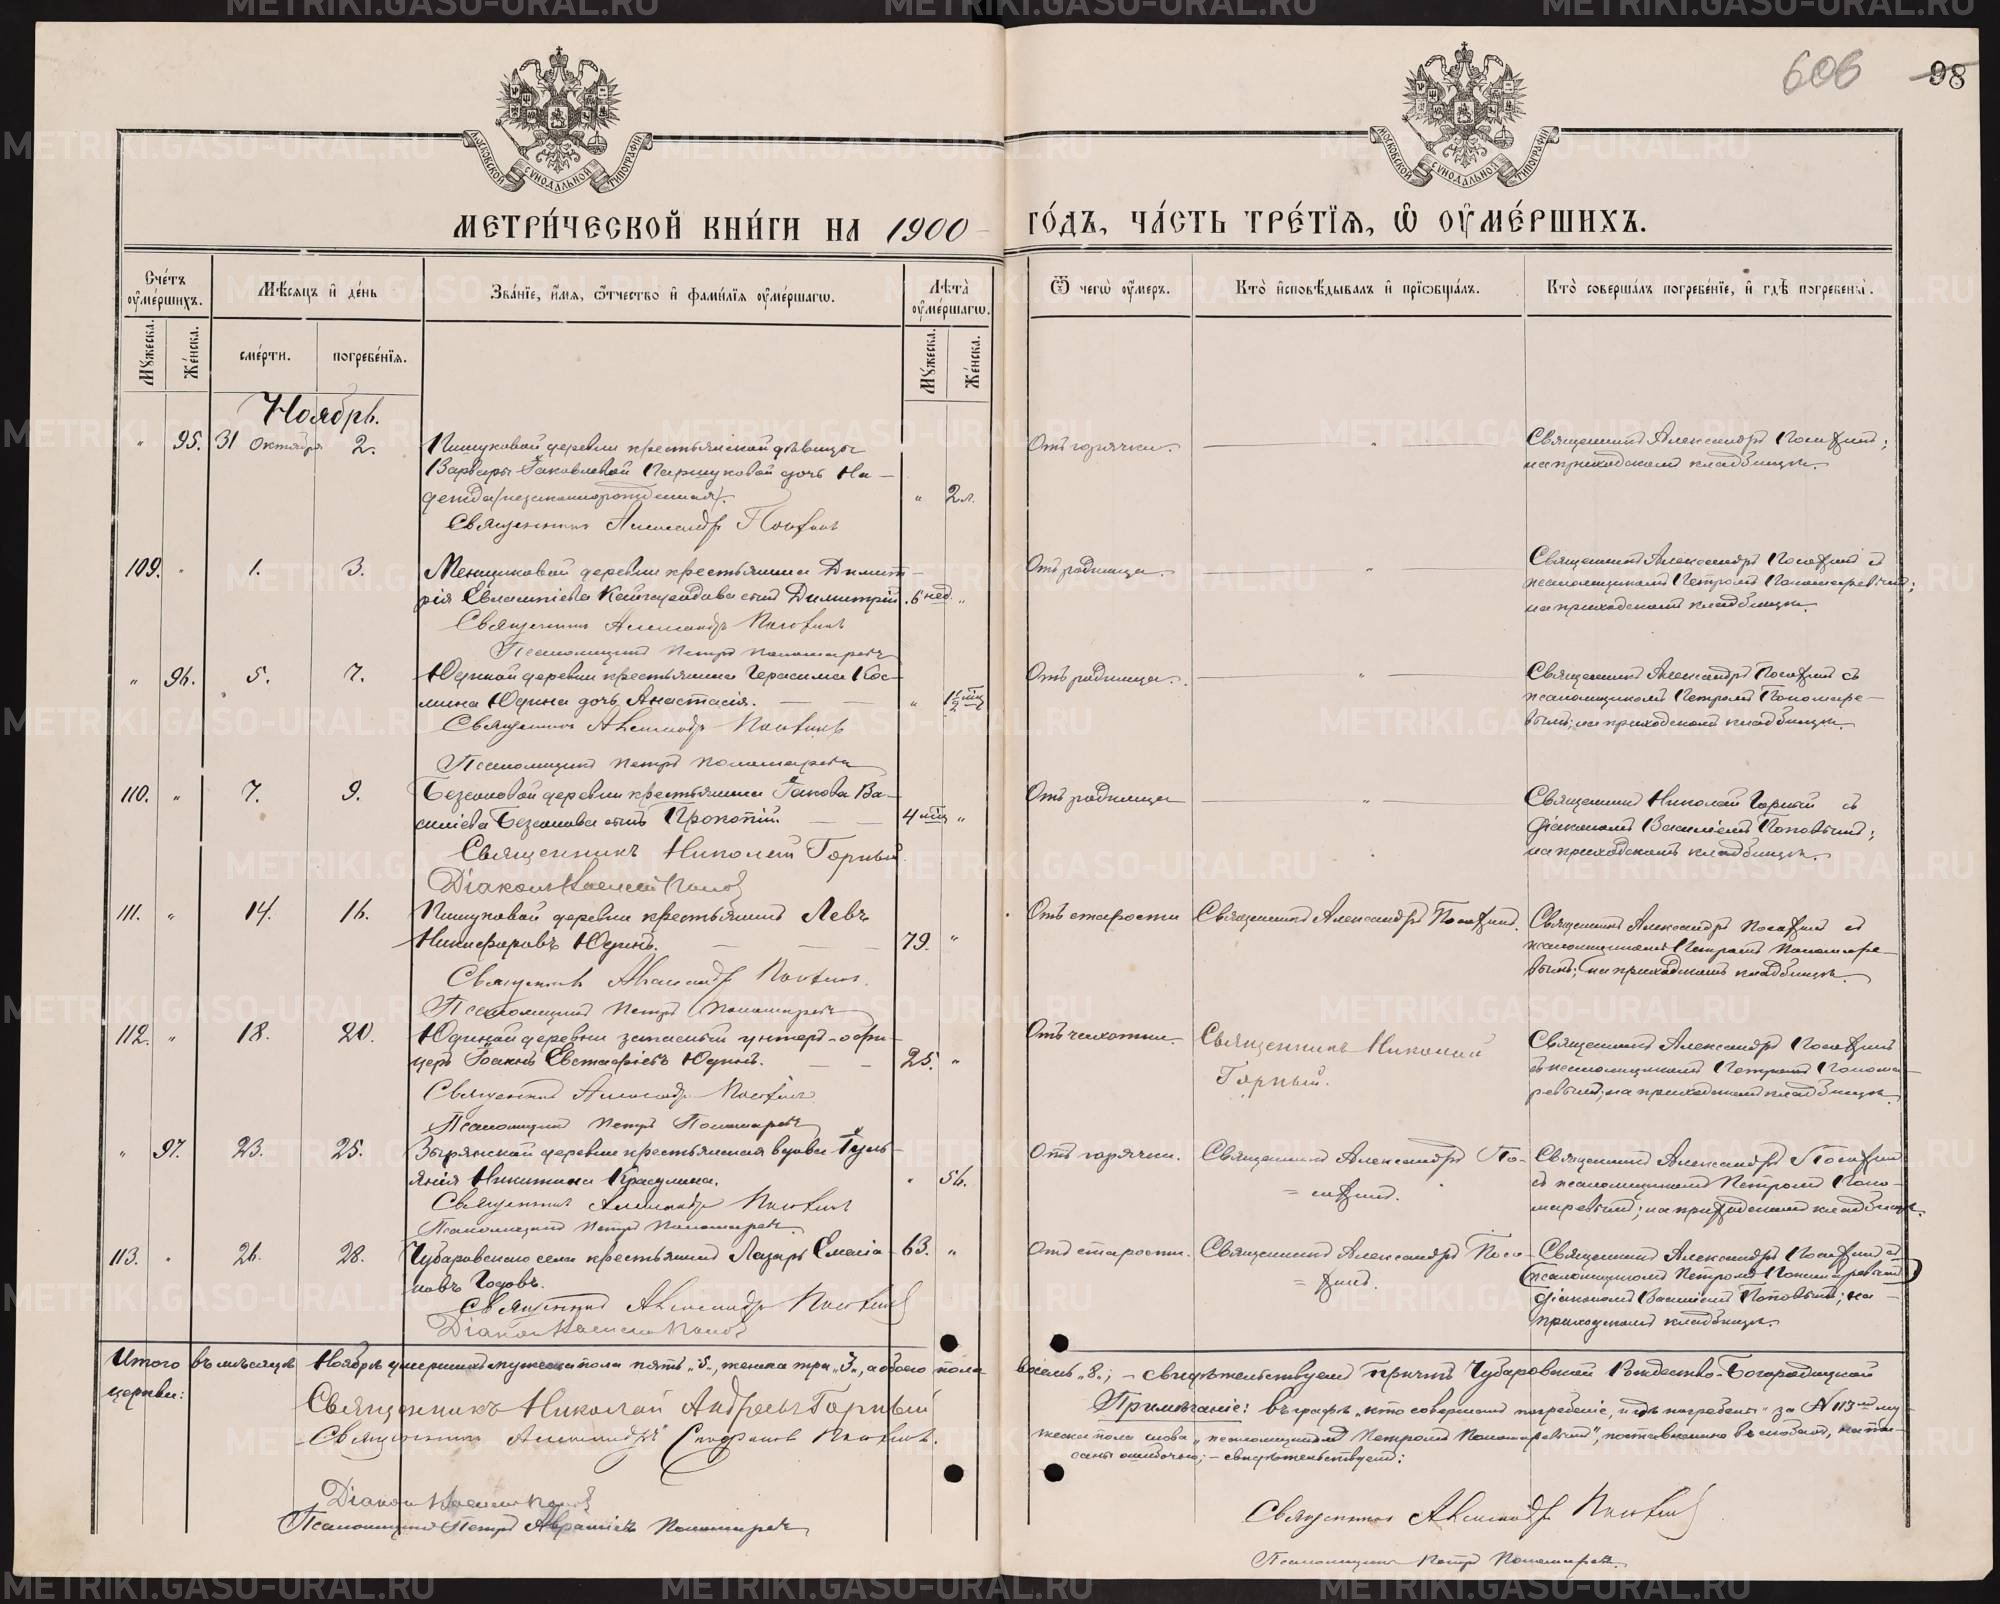 606 98
МОСКОВСКОЙ СѴНОДАЛЬНОЙ ТИПОГРАФІИ
МОСКОВСКОЙ СѴНОДАЛЬНОЙ ТИПОГРАФІИ
МЕТРИ́ЧЕСКОЙ КНИ́ГИ НА 1900 ГО́ДЪ, ЧА́СТЬ ТРЕ́ТЇѦ, Ѽ ОУ҆МЕ́РШИХЪ.
Сче́тъ оу҆ме́ршихъ.
Мѣ́сѧцъ и҆ де́нь
Зва́нїе, и҆́мѧ, ѻ҆́тчество и҆ фами́лїѧ оу҆ме́ршагѡ.
Лѣ́та оу҆ме́ршагѡ.
Ѿ чегѡ̀ оу҆́меръ.
Кто̀ и҆сповѣ́дывалъ и҆ прїѡбща́лъ.
Кто̀ соверша́лъ погребе́нїе, и҆ гдѣ̀ погребены̀.
Мꙋ́жеска. Же́нска. сме́рти. погребе́нїѧ. Мꙋ́жеска. Же́нска.
Ноябрь.
" 95. 31 Октября 2. Пишуковой деревни крестьянской дѣвицы
Варвары Іаковлевой Паршуковой дочь На-
дежда (незаконнорожденная). " 2 л.
Священникъ Александръ
Отъ горячки. "
Священникъ Александръ
на приходскомъ кладбищѣ.
109. " 1. 3. Менщиковой деревни крестьянина Димит-
рія Евлампіева сынъ Димитрій. 6 нед. "
Священникъ Александръ
Псаломщикъ Петръ Пономаревъ
Отъ родимца. "
Священникъ Александръ съ
псаломщикомъ Петромъ Пономаревымъ;
на приходскомъ кладбищѣ.
" 96. 5. 7. Юдиной деревни крестьянина Герасима Кос-
мина Юдина дочь Анастасія. " 1½ мѣс
Священникъ Александръ
Псаломщикъ Петръ Пономаревъ
Отъ родимца. "
Священникъ Александръ съ
псаломщикомъ Петромъ Пономаре-
вымъ; на приходскомъ кладбищѣ.
110. " 7. 9. Безсоновой деревни крестьянина Іакова Ва-
силіева Безсонова сынъ Прокопій. 4 мѣс "
Священникъ Николай Горный.
Діаконъ Василій Поповъ
Отъ родимца "
Священникъ Николай Горный съ
діакономъ Василіемъ Поповымъ;
на приходскомъ кладбищѣ.
111. " 14. 16. Пишуковой деревни крестьянинъ Левъ
Никифоровъ Юдинъ. 79. "
Священникъ Александръ
Псаломщикъ Петръ Пономаревъ
Отъ старости Священникъ Александръ
Священникъ Александръ съ
псаломщикомъ Петромъ Пономаре-
вымъ; на приходскомъ кладбищѣ.
112. " 18. 20. Юдиной деревни запасный унтеръ-офи-
церъ Іоаннъ Евстафіевъ Юдинъ. 25. "
Священникъ Александръ
Псаломщикъ Петръ Пономаревъ
Отъ чахотки. Священникъ Николай
Горный.
Священникъ Александръ
съ псаломщикомъ Петромъ Понома-
ревымъ; на приходскомъ кладбищѣ.
" 97. 23. 25. Зырянской деревни крестьянская вдова Іуль-
янія Никитина Красулина. " 56.
Священникъ Александръ
Псаломщикъ Петръ Пономаревъ
Отъ горячки. Священникъ Александръ
Священникъ Александръ
съ псаломщикомъ Петромъ Поно-
маревымъ; на приходскомъ кладбищѣ.
113. " 26. 28. Чубаровскаго села крестьянинъ Лазарь Емелiа-
новъ 63. "
Священникъ Александръ
Діаконъ Василій Поповъ
Отъ старости. Священникъ Александръ
Священникъ Александръ съ
(псаломщикомъ Петромъ Пономаревымъ)
діакономъ Василіемъ Поповымъ; на
приходскомъ кладбищѣ.
Итого въ мѣсяцѣ Ноябрѣ умершихъ мужеска пола пять „5", женска три „3", а обоего пола восемь „8"; – свидѣтельствуемъ причтъ Чубаровской Рождество-Богородицкой
церкви:
Священникъ Николай Андреевъ Горный
Священникъ Александръ
Діаконъ Василій Поповъ
Псаломщикъ Петръ Пономаревъ
Примѣчаніе: въ графѣ „кто совершалъ погребеніе, и гдѣ погребены" за № 113мъ му-
жеска пола слова „псаломщикомъ Петромъ Пономаревымъ", поставленно въ скобахъ, напи-
саны ошибочно; – свидѣтельствуемъ:
Священникъ Александръ
Псаломщикъ Петръ Пономаревъ.
METRIKI.GASO-URAL.RU